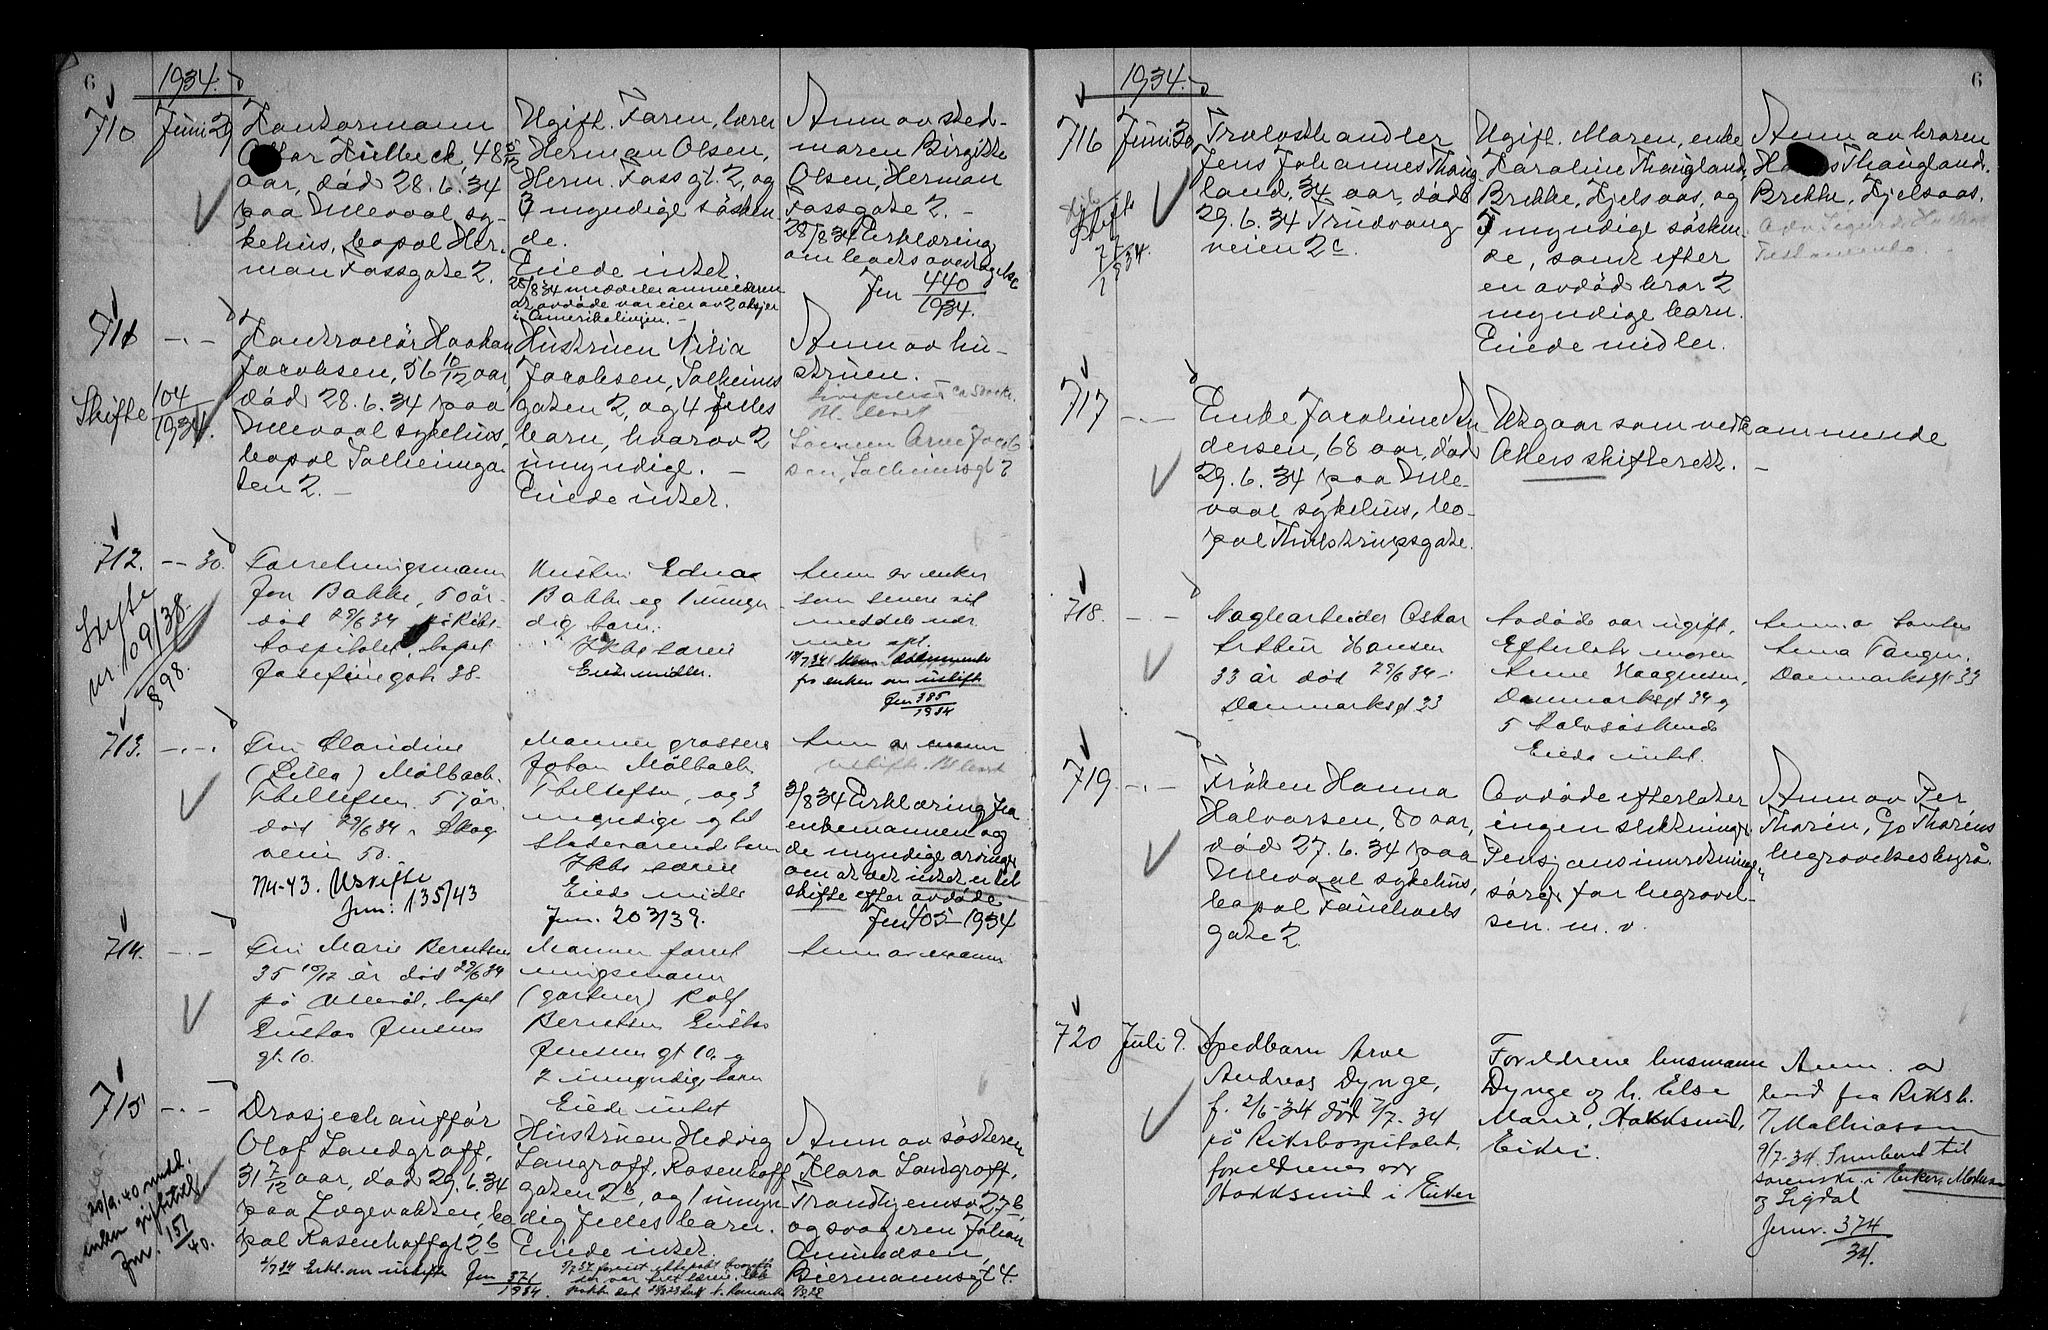 6
1934.
710 Juni 29
Kontormann
Hulbeck, 48 5/12
aar, død 28.6.34
paa Ullevaal sy-
kehus, bopal Her-
man Fossgate 2.
Ugift. Faren, lærer
Herman Olsen,
Herm. Foss gt. 2, og
myndige søsken
de.
Eiede intet.
28/8 34 meddeler anmelderen
at avdøde var eier av 2 aksjer
i Amerikalinjen. -
Anm av sted-
moren Birgitte
Olsen, Herman
Fossgate 2. -
28/8 34 Erklæring
om boets overtagelse
Jnr 440
1934.
711 - . -
Skifte 104
1934.
Kontrollør Haakon
Jacobsen, 56 10/12 aar,
død 28.6.34 paa
Ullevaal sykehus,
bopal Solheimga-
ten 2. -
Hustruen
Jacobsen, Solheims
gaten 2, og 4 felles
barn, hvorav 2
umyndige. -
Eiede intet.
Anm av hu-
struen.
Sønnen Arne Jacob
sen, Solheimsgt 2
712. - - 30.
Skifte
nr. 109/38.
898.
Forretningsmann
Jon Bakke, 50 år.
død 29/6 34 på Riks-
hospitalet, bopel
Josefinegate 38.
Hustru Edna
Bakke og 1 umyn
dig barn.
Ikke særeie
Eiede midler.
Anm av enken
som senere vil
meddele nær
mere opl.
fra enken om uskifte
Jnr 385
1934
713. - . - .
Fru Claudine
(Lilla) Mølbach-
Thellefsen. 57 år.
død 29/6 34, Skog
veien 50.
7/4-43. Uskifte
Jnr: 135/43
Mannen grosserer
Johan Mølbach
Thellefsen, og 3
myndige og til
stedeværende barn
Ikke særeie
Eiede midler
Jnr. 203/39.
Anm av mannen
3/8 34 Erklæring fra
enkemannen og
de myndige arvinger
om at det intet er til
skifte efter avdøde
Jnr 405 - 1934
714. - . -
Fru Marie Berntsen
35 10/12 år død 29/6 34
på Ullevål, bopel
Gustav Jensens
gt. 10.
Mannen forret
ningsmann
(gartner) Rolf
Berntsen Gustav
Jensens gt 10. og
2 umyndige barn
Eiede intet
Anm av mannen
715 - . -
20/9. 40 medd.
enken giftet sig
Jnr. 151
40.
Drosjechauffør
Olaf Landgraff,
31 7/12 aar, død 29.6.34
paa Lægevakten, bo
pal Rosenhoffgt 2 b
4/7 34 Erkl. om uskifte Jnr 371
1934.
Hustruen Hedvig
Langraff, Rosenhoff
gaten 2 b, og 1 umyn
dig felles barn.
Eiede intet.
Anm av søsteren
Klara Landgraff,
Trondhjemsv 27 b,
og svogeren Johan
Amundsen,
Biermannsgt 4.
1934.
6
716 Juni 30
Skifte
72
1934.
Trælasthandler
Jens Johannes Thaug-
land, 34 aar, død
29.6.34 Trudvang
veien 2 c.
Ugift. Moren, enke
Karoline Thaugland,
Brekke, Kjelsaas, og
myndige søsken
de, samt efter
en avdød bror 2
myndige barn.
Eiede midler.
Anm av broren
Thaugland.
Brekke, Kjelsaas.
Testamente
717 - . -
Enke Jacobine An
dersen, 68 aar, død
29.6.34 paa Ulle-
vaal sykehus, bo-
pal Thulstrupsgate.
Utgaar som vedkommende
Akers skifterett. -
718. - . -
Naglearbeider Oskar
Arthur Hansen
33 år død 29/6 34 -
Danmarksgt 33
Avdøde var ugift,
Efterlot moren
Anne Haagensen,
Danmarksgt 34 og
5 halvsøskende
Eiede intet.
Anm. av tanten
Anna Tangen.
Danmarksgt 33
719. - . -
Frøken Hanna
Halvorsen, 80 aar,
død 27.6.34 paa
Ullevaal sykehus,
bopal Fauchalds
gate 2.
Avdøde efterlater
ingen slektninger.
Pensjonsinnretningen
sørger for begravel-
sen. m. v.
Anm av Per
Thorén, Go Thoréns
begravelsesbyrå.
720 Juli 9.
Spedbarn Arve
Andreas Dynge,
f. 2/6-34 død 7/7. 34
på Rikshospitalet.
foreldrenes adr
Hokksund i Eiker
Foreldrene lensmann
Dynge og h. Else
Marie, Hokksund,
Eiker.
Anm. av
bud fra Riksh.
7 Mathiassen
9/7-34. Innberet til
sorenskr. i Eiker, Modum
og Sigdal
Jnr. 374
34.